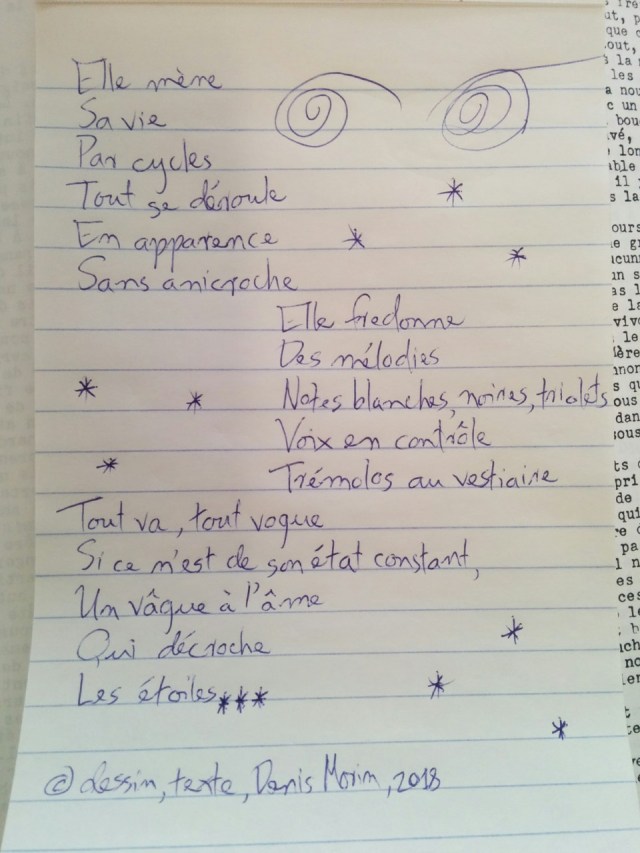 Elle mène
Sa vie
Par cycles
Tout se déroule
En apparence
Sans anicroche
Elle fredonne
Des mélodies
Notes blanches, noires, triolets
Voix en contrôle
Trémolos au vestiaire
Tout va, tout vogue
Si ce n'est de son état constant,
Un vâgue à l'âme
Qui décroche
Les étoiles***
© dessin, texte, Denis Morin, 2018